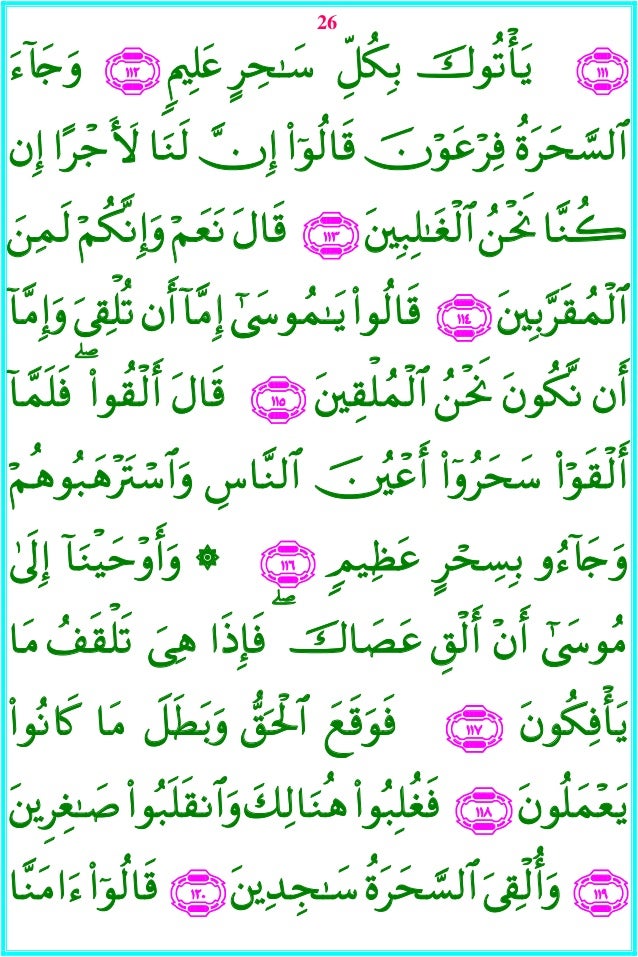 26
١١١ يَأْتُوكَ بِكُلِّ سَـٰحِرٍ عَلِيمٍ ١١٢ وَجَآءَ
ٱلسَّحَرَةُ فِرْعَوْنَ قَالُوٓا۟ إِنَّ لَنَا لَأَجْرًا إِن
كُنَّا نَحْنُ ٱلْغَـٰلِبِينَ ١١٣ قَالَ نَعَمْ وَإِنَّكُمْ لَمِنَ
ٱلْمُقَرَّبِينَ ١١٤ قَالُوا۟ يَـٰمُوسَىٰٓ إِمَّآ أَن تُلْقِىَ وَإِمَّآ
أَن نَّكُونَ نَحْنُ ٱلْمُلْقِينَ ١١٥ قَالَ أَلْقُوا۟ ۖ فَلَمَّآ
أَلْقَوْا۟ سَحَرُوٓا۟ أَعْيُنَ ٱلنَّاسِ وَٱسْتَرْهَبُوهُمْ
وَجَآءُو بِسِحْرٍ عَظِيمٍ ١١٦ ۞ وَأَوْحَيْنَآ إِلَىٰ
مُوسَىٰٓ أَنْ أَلْقِ عَصَاكَ ۖ فَإِذَا هِىَ تَلْقَفُ مَا
يَأْفِكُونَ ١١٧ فَوَقَعَ ٱلْحَقُّ وَبَطَلَ مَا كَانُوا۟
يَعْمَلُونَ ١١٨ فَغُلِبُوا۟ هُنَالِكَ وَٱنقَلَبُوا۟ صَـٰغِرِينَ
١١٩ وَأُلْقِىَ ٱلسَّحَرَةُ سَـٰجِدِينَ ١٢٠ قَالُوٓا۟ ءَامَنَّا